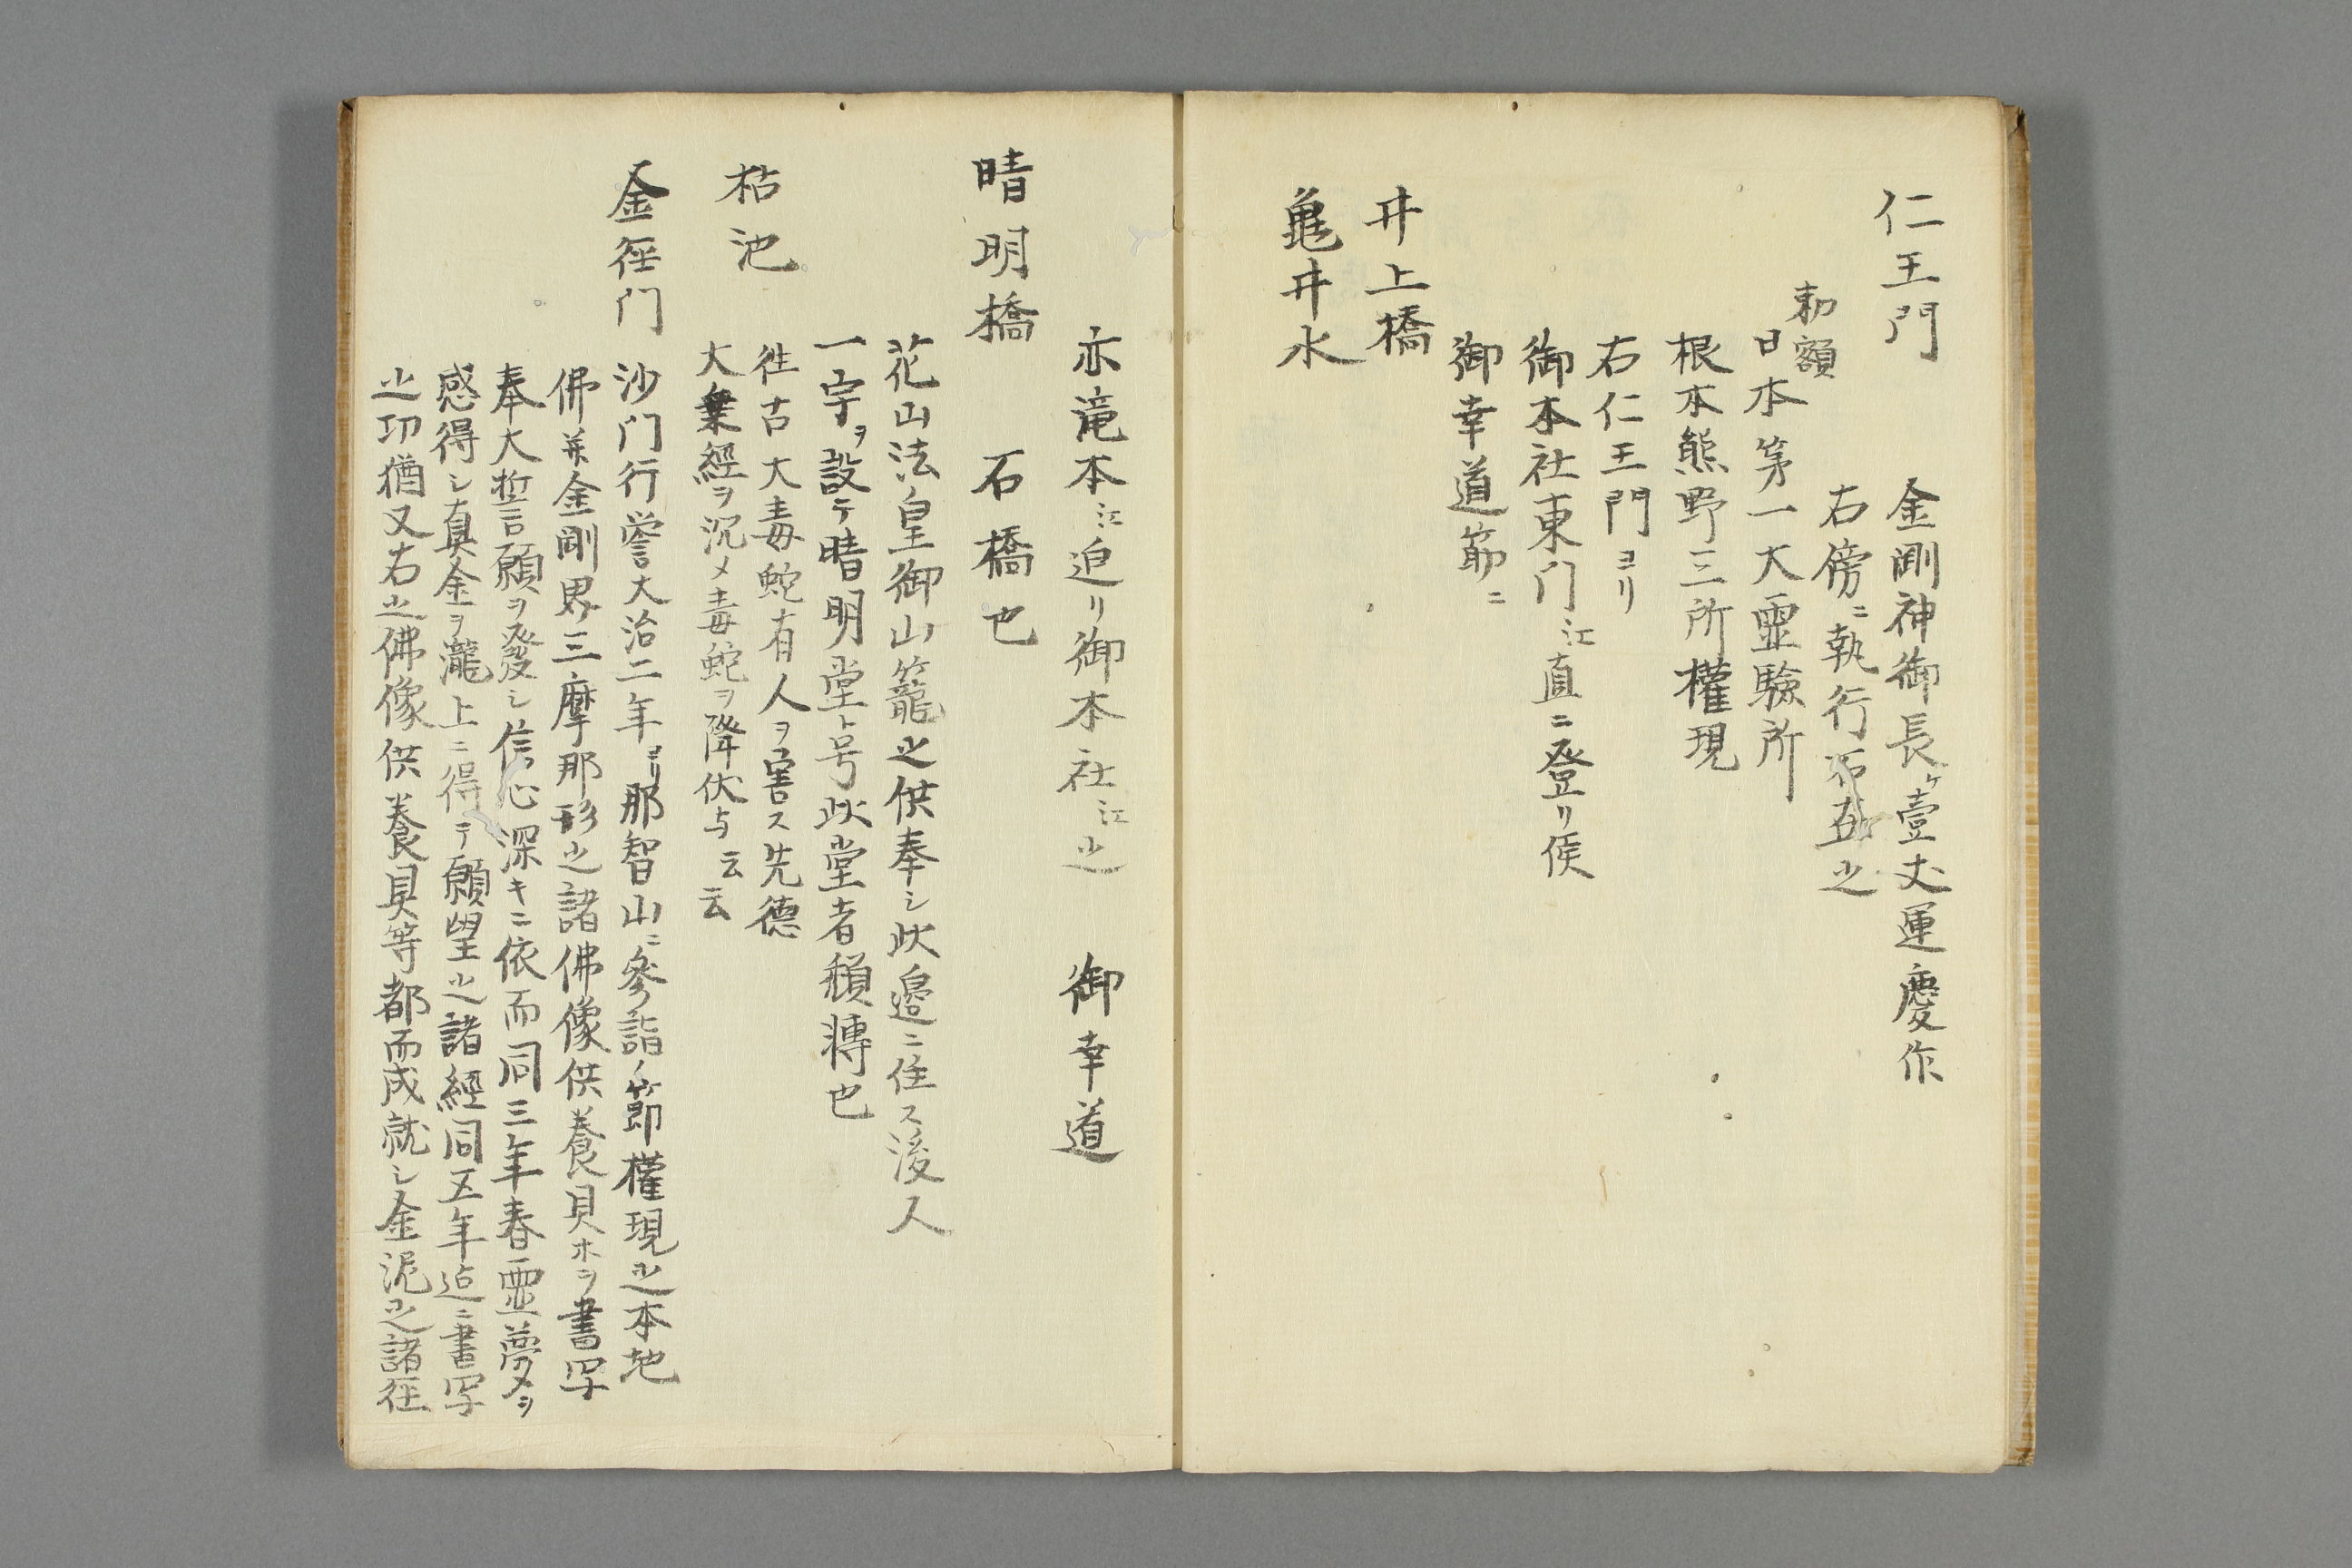 仁王門
金剛神御長ケ壹丈運慶作
右傍ニ執行之
勅額
日本第一大霊驗所
根本熊野三所權現
右仁王門ヨリ
御本社東门江直ニ登リ侯
御幸道筋ニ
井上橋
亀井水
亦滝本江迫リ御本社江之 御幸道
晴明橋 石橋也
花山法皇御山籠之供奉シ此邉ニ住ス後人
一宇ヲ設テ晴明堂ト号此堂者頽轉也
枯池
徃古大毒蛇有人ヲ害ス先德
大乗經ヲ沉メ毒蛇ヲ降伏与云云
金経门
沙门行誉大治二年ヨリ那智山ニ参詣ノ節權現之本地
佛并金剛界三摩那形之諸佛像供養具ホヲ書写
奉大誓願ヲ發シ信心深キニ依而同三年春霊夢ヲ
感得シ真金ヲ瀧上ニ得テ願望之諸經同五年迠ニ書写
之功猶又右之佛像供養具等都而成就シ金泥之諸経